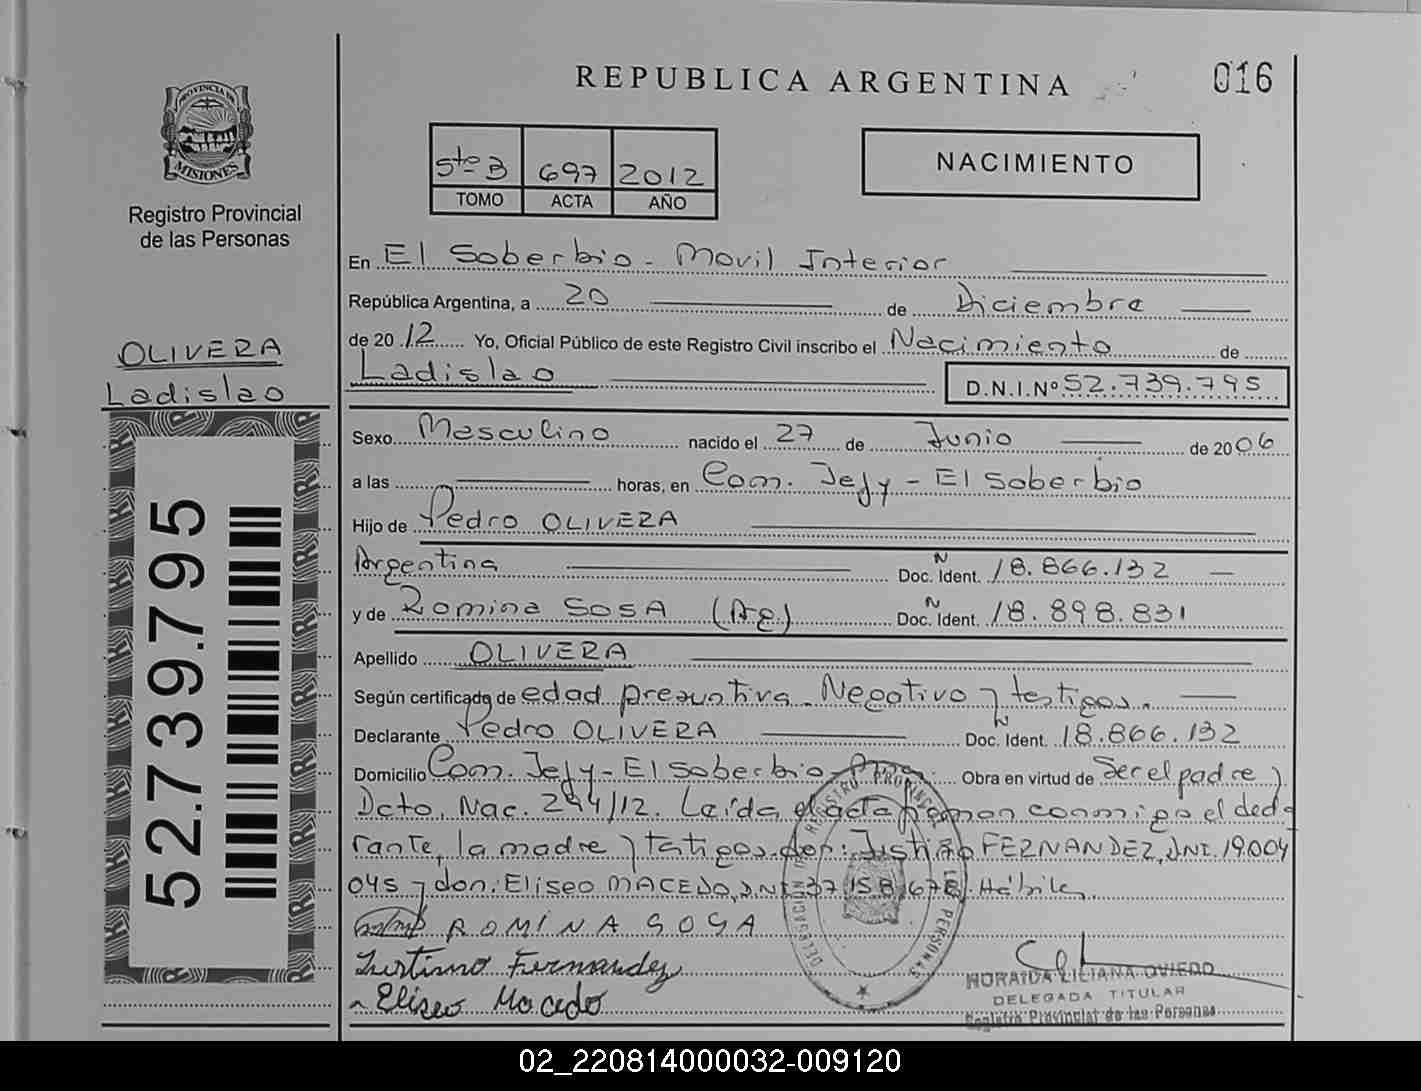 REPUBLICA ARGENTINA
016
PROVINCIA DE
MISIONES
Registro Provincial
de las Personas
5to B 697 2012
TOMO ACTA AÑO
NACIMIENTO
OLIVERA
Ladislao
52.739.795
En El Soberbio - Movil Interior
República Argentina, a 20 de Diciembre
de 2012 Yo, Oficial Público de este Registro Civil inscribo el Nacimiento de
Ladislao D.N.I.Nº 52.739.795
Sexo Masculino nacido el 27 de Junio de 2006
a las horas, en Com. Jejy - El Soberbio
Hijo de Pedro OLIVERA
Argentina Doc. Ident. N 18.866.132
y de Romina SOSA (Arg) Doc. Ident. N 18.898.831
Apellido OLIVERA
Según certificado de edad presuntiva. Negativo y testigos.
Declarante Pedro OLIVERA Doc. Ident. N 18.866.132
Domicilio Com. Jejy - El Soberbio Obra en virtud de Ser el padre y
Dcto. Nac. 294/12. Leída el acta firman conmigo el decla
rante, la madre y testigos don: Justino FERNANDEZ, DNI. 19.004
045 y don: Eliseo MACEDO, DNI 37.158.678. Hábiles.
ROMINA SOSA
Justino Fernandez
Eliseo Macedo
DELEGACION REGISTRO PROVINCIAL DE LAS PERSONAS
HORAIDA LILIANA OVIEDO
DELEGADA TITULAR
Registro Provincial de las Personas
02_220814000032-009120